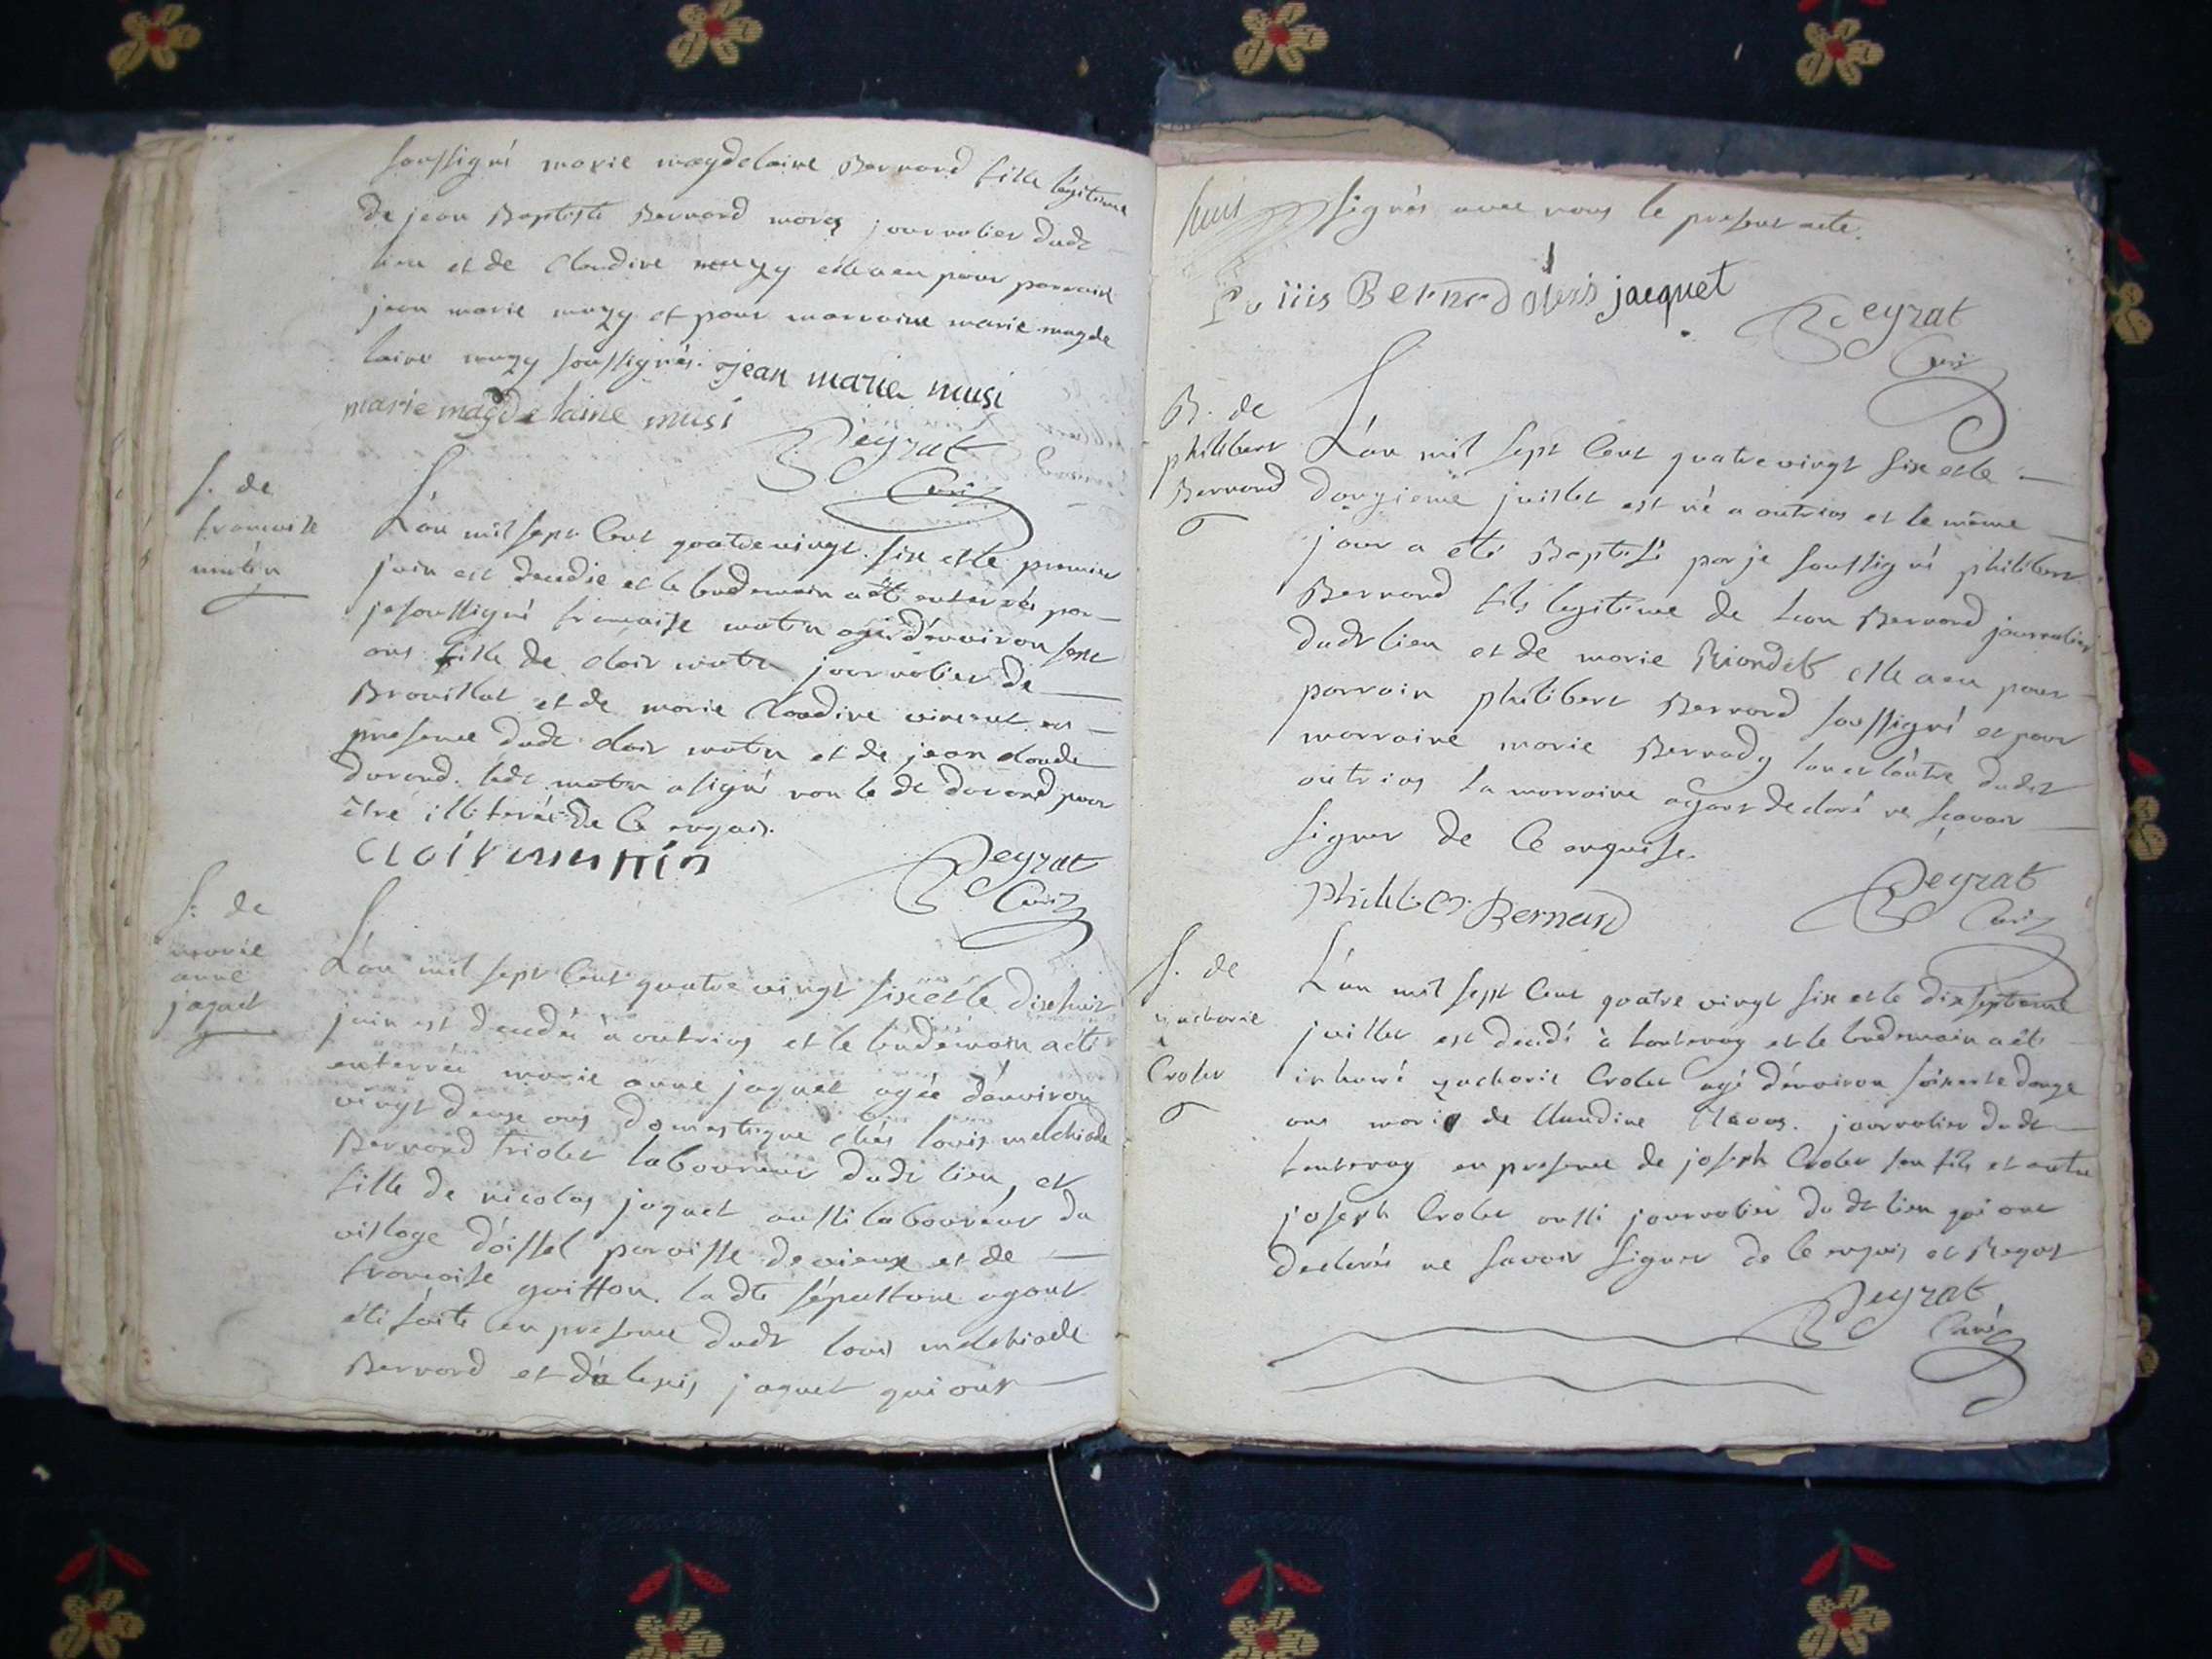 soussigné marie magdelaine Bernard fille légitime
de jean Baptiste Bernard journalier dudt
lieu et de Claudine muzy elle a eu pour parrain
jean marie muzy et pour marraine marie magde
laine muzy soussignés. jean marie musi
marie magdelaine musi
Peyrat
Curé
S. de
francoise
L'an mil sept Cent quatrevingt six et le premier
juin est decedée et le lendemain a été enterrée par
je soussigné francoise agée d'environ
ans fille de clair journalier de
Brouillat et de marie Claudine vincent en
presence dudt clair et de jean claude
durand. ledt a signé non le dt durand pour
être illiteré de Ce enquis.
Peyrat
Curé
S. de
marie
anne
jaquet
L'an mil sept Cent quatre vingt six et le dixhuit
juin est decedée à outrias et le lendemain a été
enterrée marie anne jaquet agée d'environ
vingt deux ans domestique chés louis melchiade
Bernard triolet laboureur dudt lieu, et
fille de nicolas jaquet aussi laboureur du
village d'oissel paroisse de vieux et de
francoise guiffon. la dte sépulture ayant
été faite en presence dudt louis melchiade
Bernard et d'alexis jaquet qui ont
signés avec nous le present acte.
Bernard alexis jacquet
Peyrat
Curé
B. de
philibert
Bernard
L'an mil sept Cent quatrevingt six et le
douzieme juillet est né a outrias et le même
jour a été Baptisé par je soussigné philibert
Bernard fils legitime de leon Bernard journalier
dudt lieu et de marie Riondet elle a eu pour
parrain philibert Bernard soussigné et pour
marraine marie Bernady l'un et l'autre dudt
outrias la marraine ayant declaré ne sçavoir
signer de Ce enquise.
philibert Bernard
Peyrat
Curé
S. de
zacharie
Crolet
L'an mil sept Cent quatre vingt six et le dixseptieme
juillet est decedé à lantenay et le lendemain a été
inhumé zacharie Crolet agé d'environ soixante douze
ans mari de Claudine journalier dudt
lantenay en presence de joseph Crolet son fils et autre
joseph Crolet aussi journalier du dt lieu qui ont
declarés ne savoir signer de Ce enquis et Requis
Peyrat
Curé